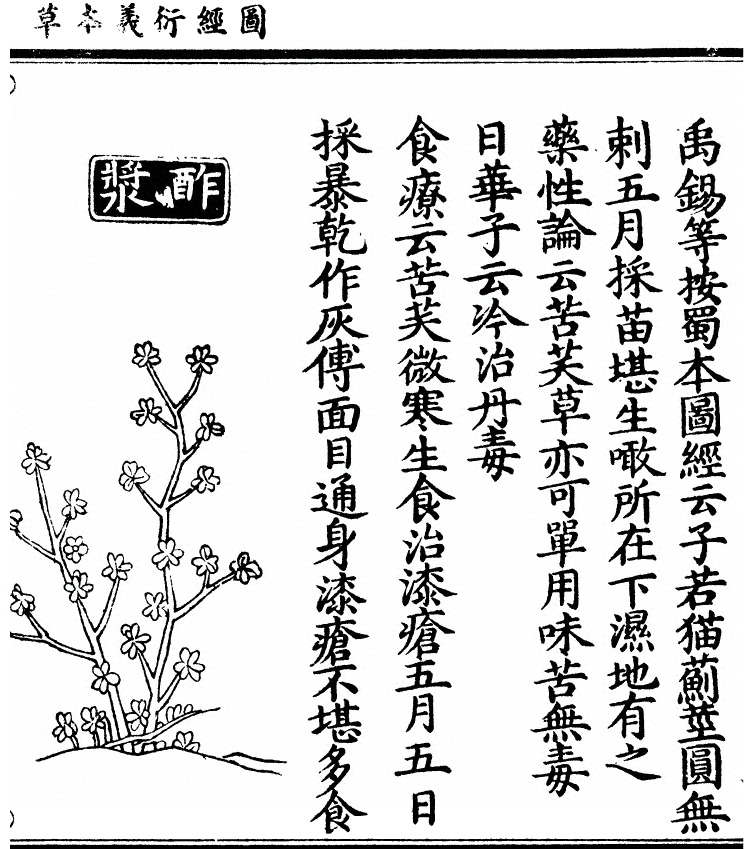 圖經衍義本草
禹錫等按蜀本圖經云子若猫薊莖圓無
刺五月採苗堪生噉所在下濕地有之
藥性論云苦芺草亦可單用味苦無毒
日華子云冷治丹毒
食療云苦芺微寒生食治漆瘡五月五日
採暴乾作灰傅面目通身漆瘡不堪多食
酢漿